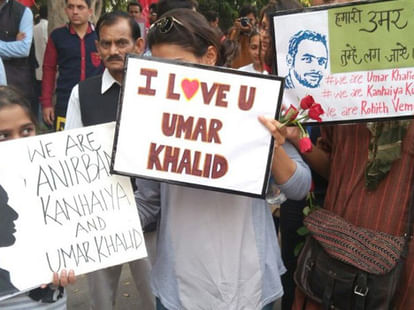 I LOVE U
UMAR
KHALID
WE ARE
ANIRBAN
KANHAIYA
AND
UMAR KHALID
हमारी उमर
तुम्हें लग जाये
#We are Umar Khalid
# We are Kanhaiya
We are Rohith